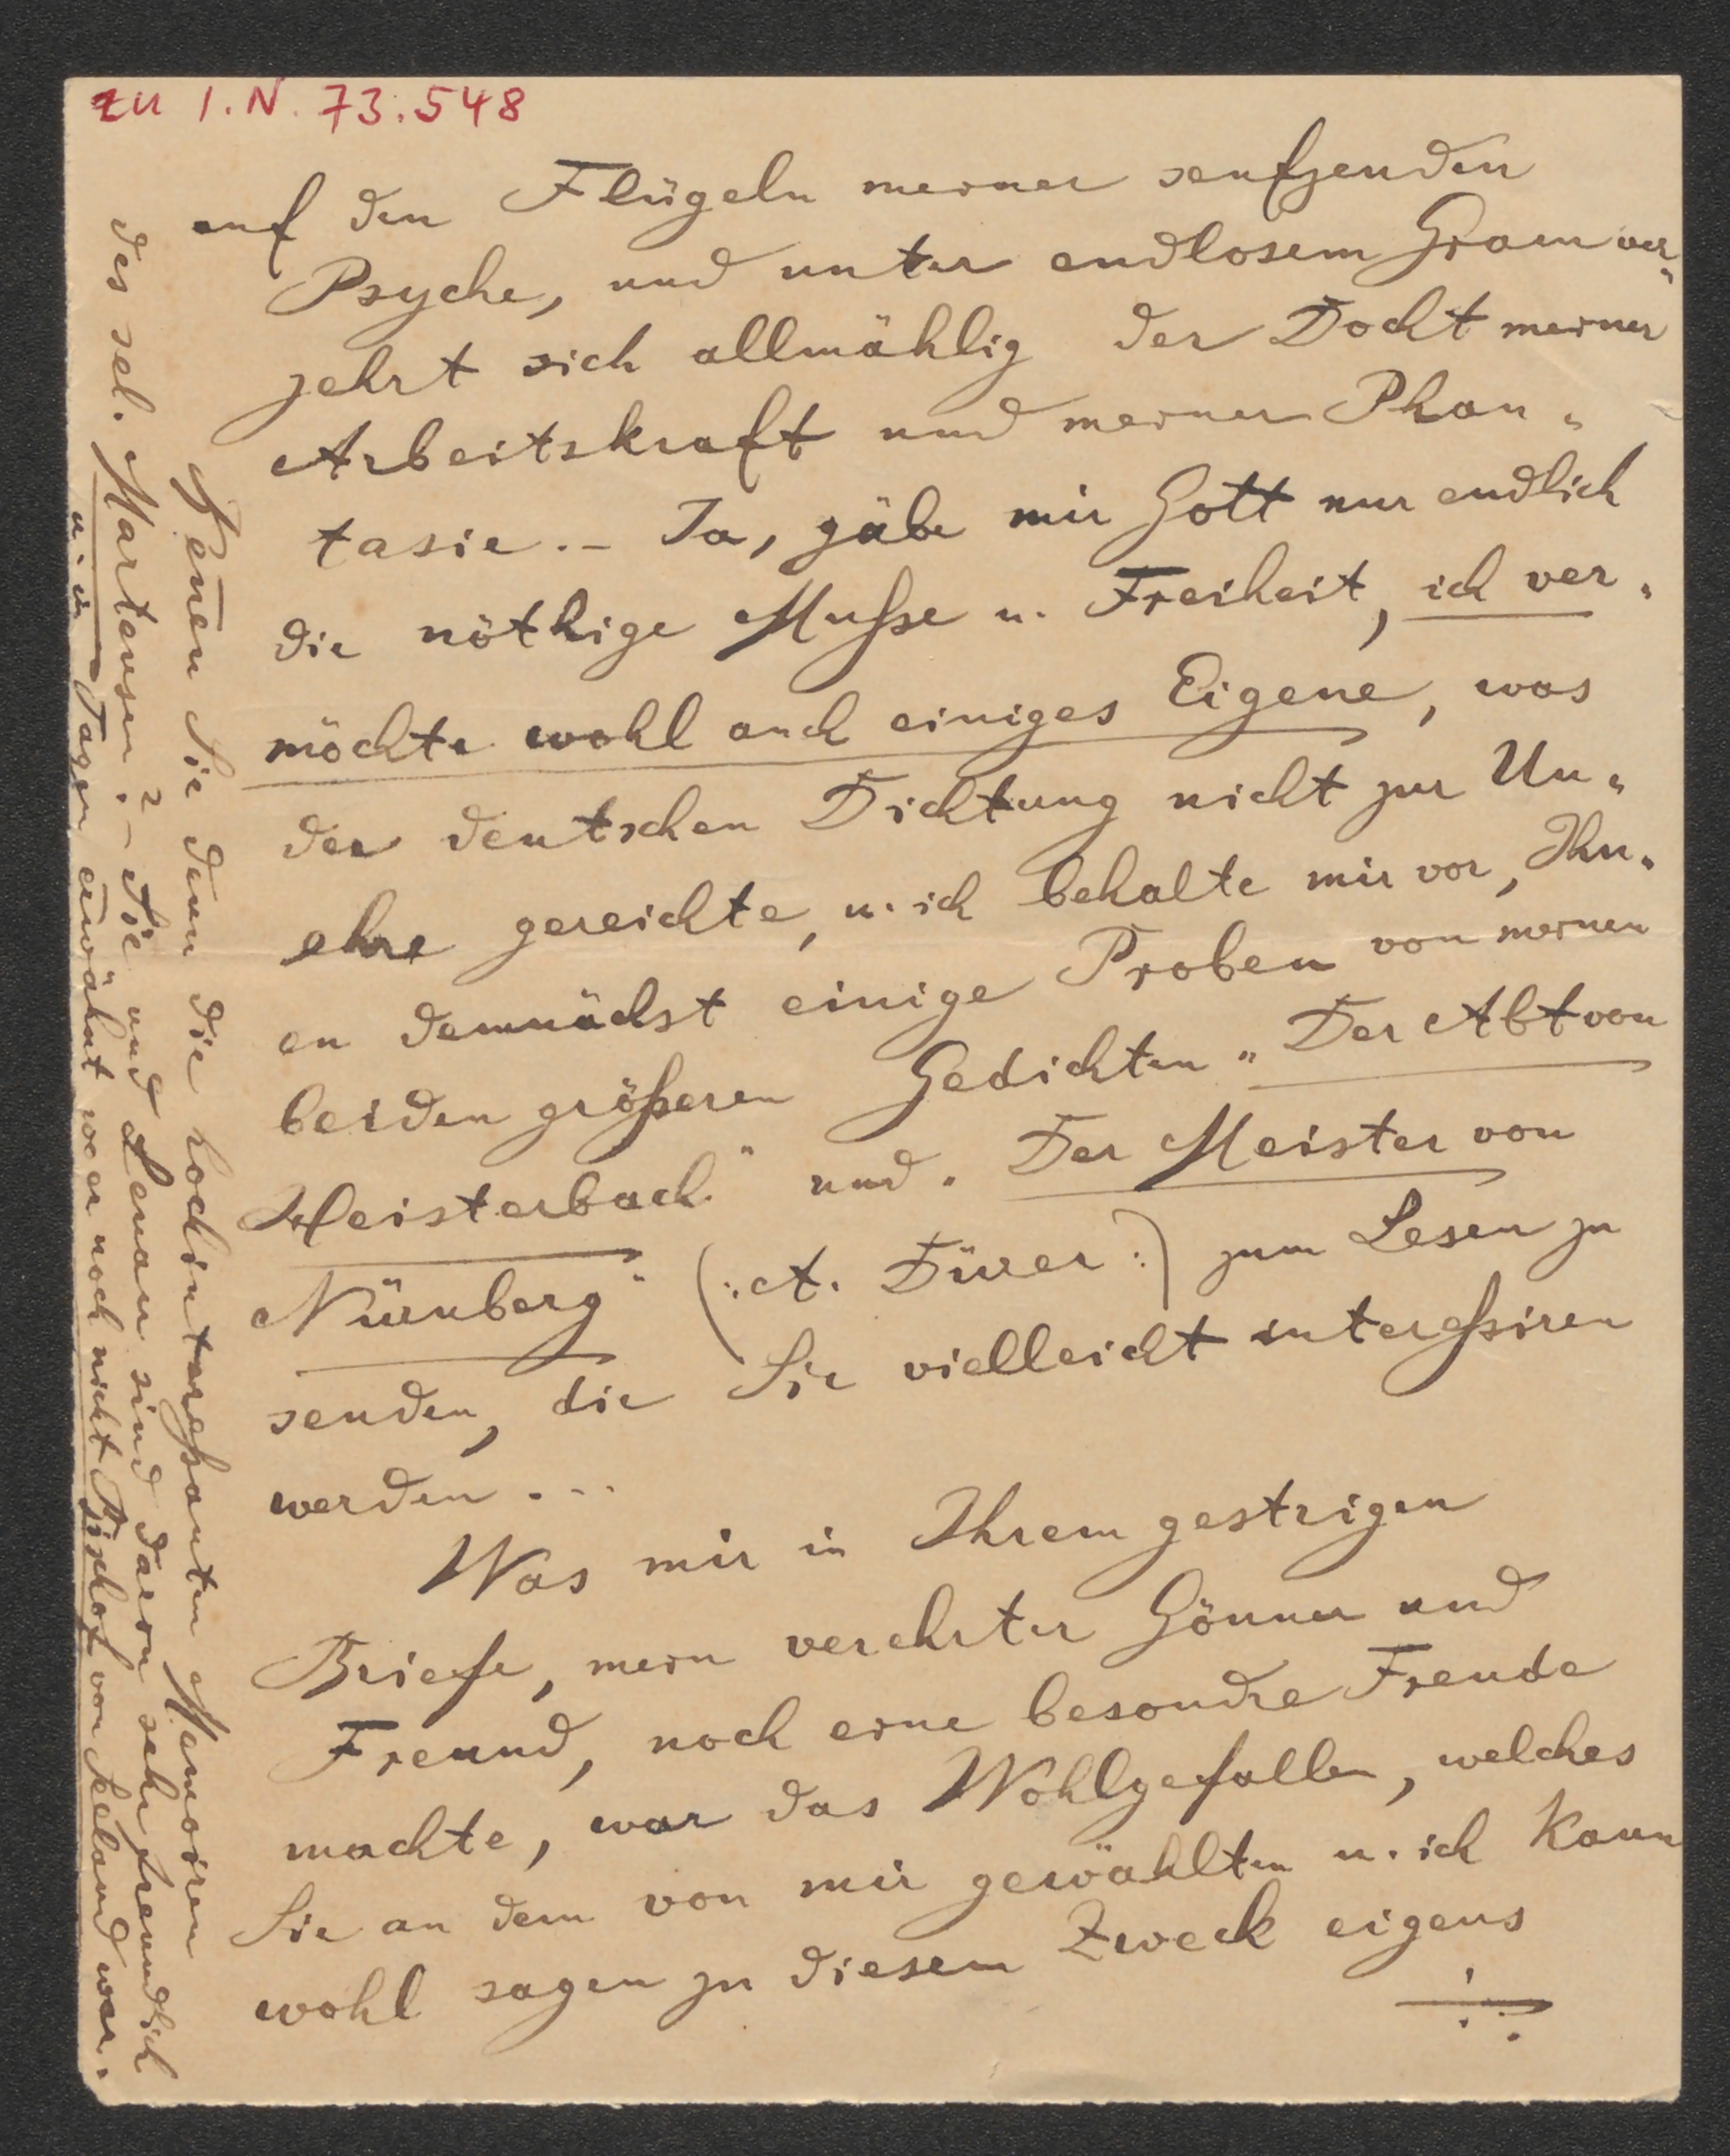 zu I.N. 73.548
auf den Flügeln meiner seufzenden
Psyche, und unter endlosem Gram ver„
zehrt sich allmählig der Docht meiner
Arbeitskraft und meiner Phan„
tasie. – Ja, gäbe mir Gott nur endlich
die nöthige Muße u. Freiheit, ich ver„
möchte wohl auch einiges Eigene, was
der deutschen Dichtung nicht zur Un„
ehre gereichte, u. ich behalte mir vor, Ihn„
en demnächst einige Proben von meinen
beiden größeren Gedichten „Der Abt von
Heisterbach“ und „Der Meister von
Nürnberg“ (: A. Dürer :) zum Lesen zu
senden, die Sie vielleicht interessiren
werden . . .
Was mir in Ihrem gestrigen
Briefe, mein verehrter Gönner und
Freund, noch eine besondre Freude
machte, war das Wohlgefallen, welches
Sie an dem von mir gewählten u. ich kann
wohl sagen zu diesem Zweck eigens
./.
Kennen Sie denn die hochinteressanten Memoiren
des sel. Martensen? – Sie und Lenau sind darin sehr freundlich
u. in Tagen erwähnt wo er noch nicht Bischof von Seeland war.